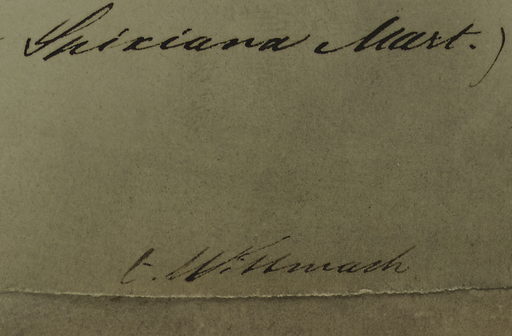 Spixiana Mart.)
C. Wittmack